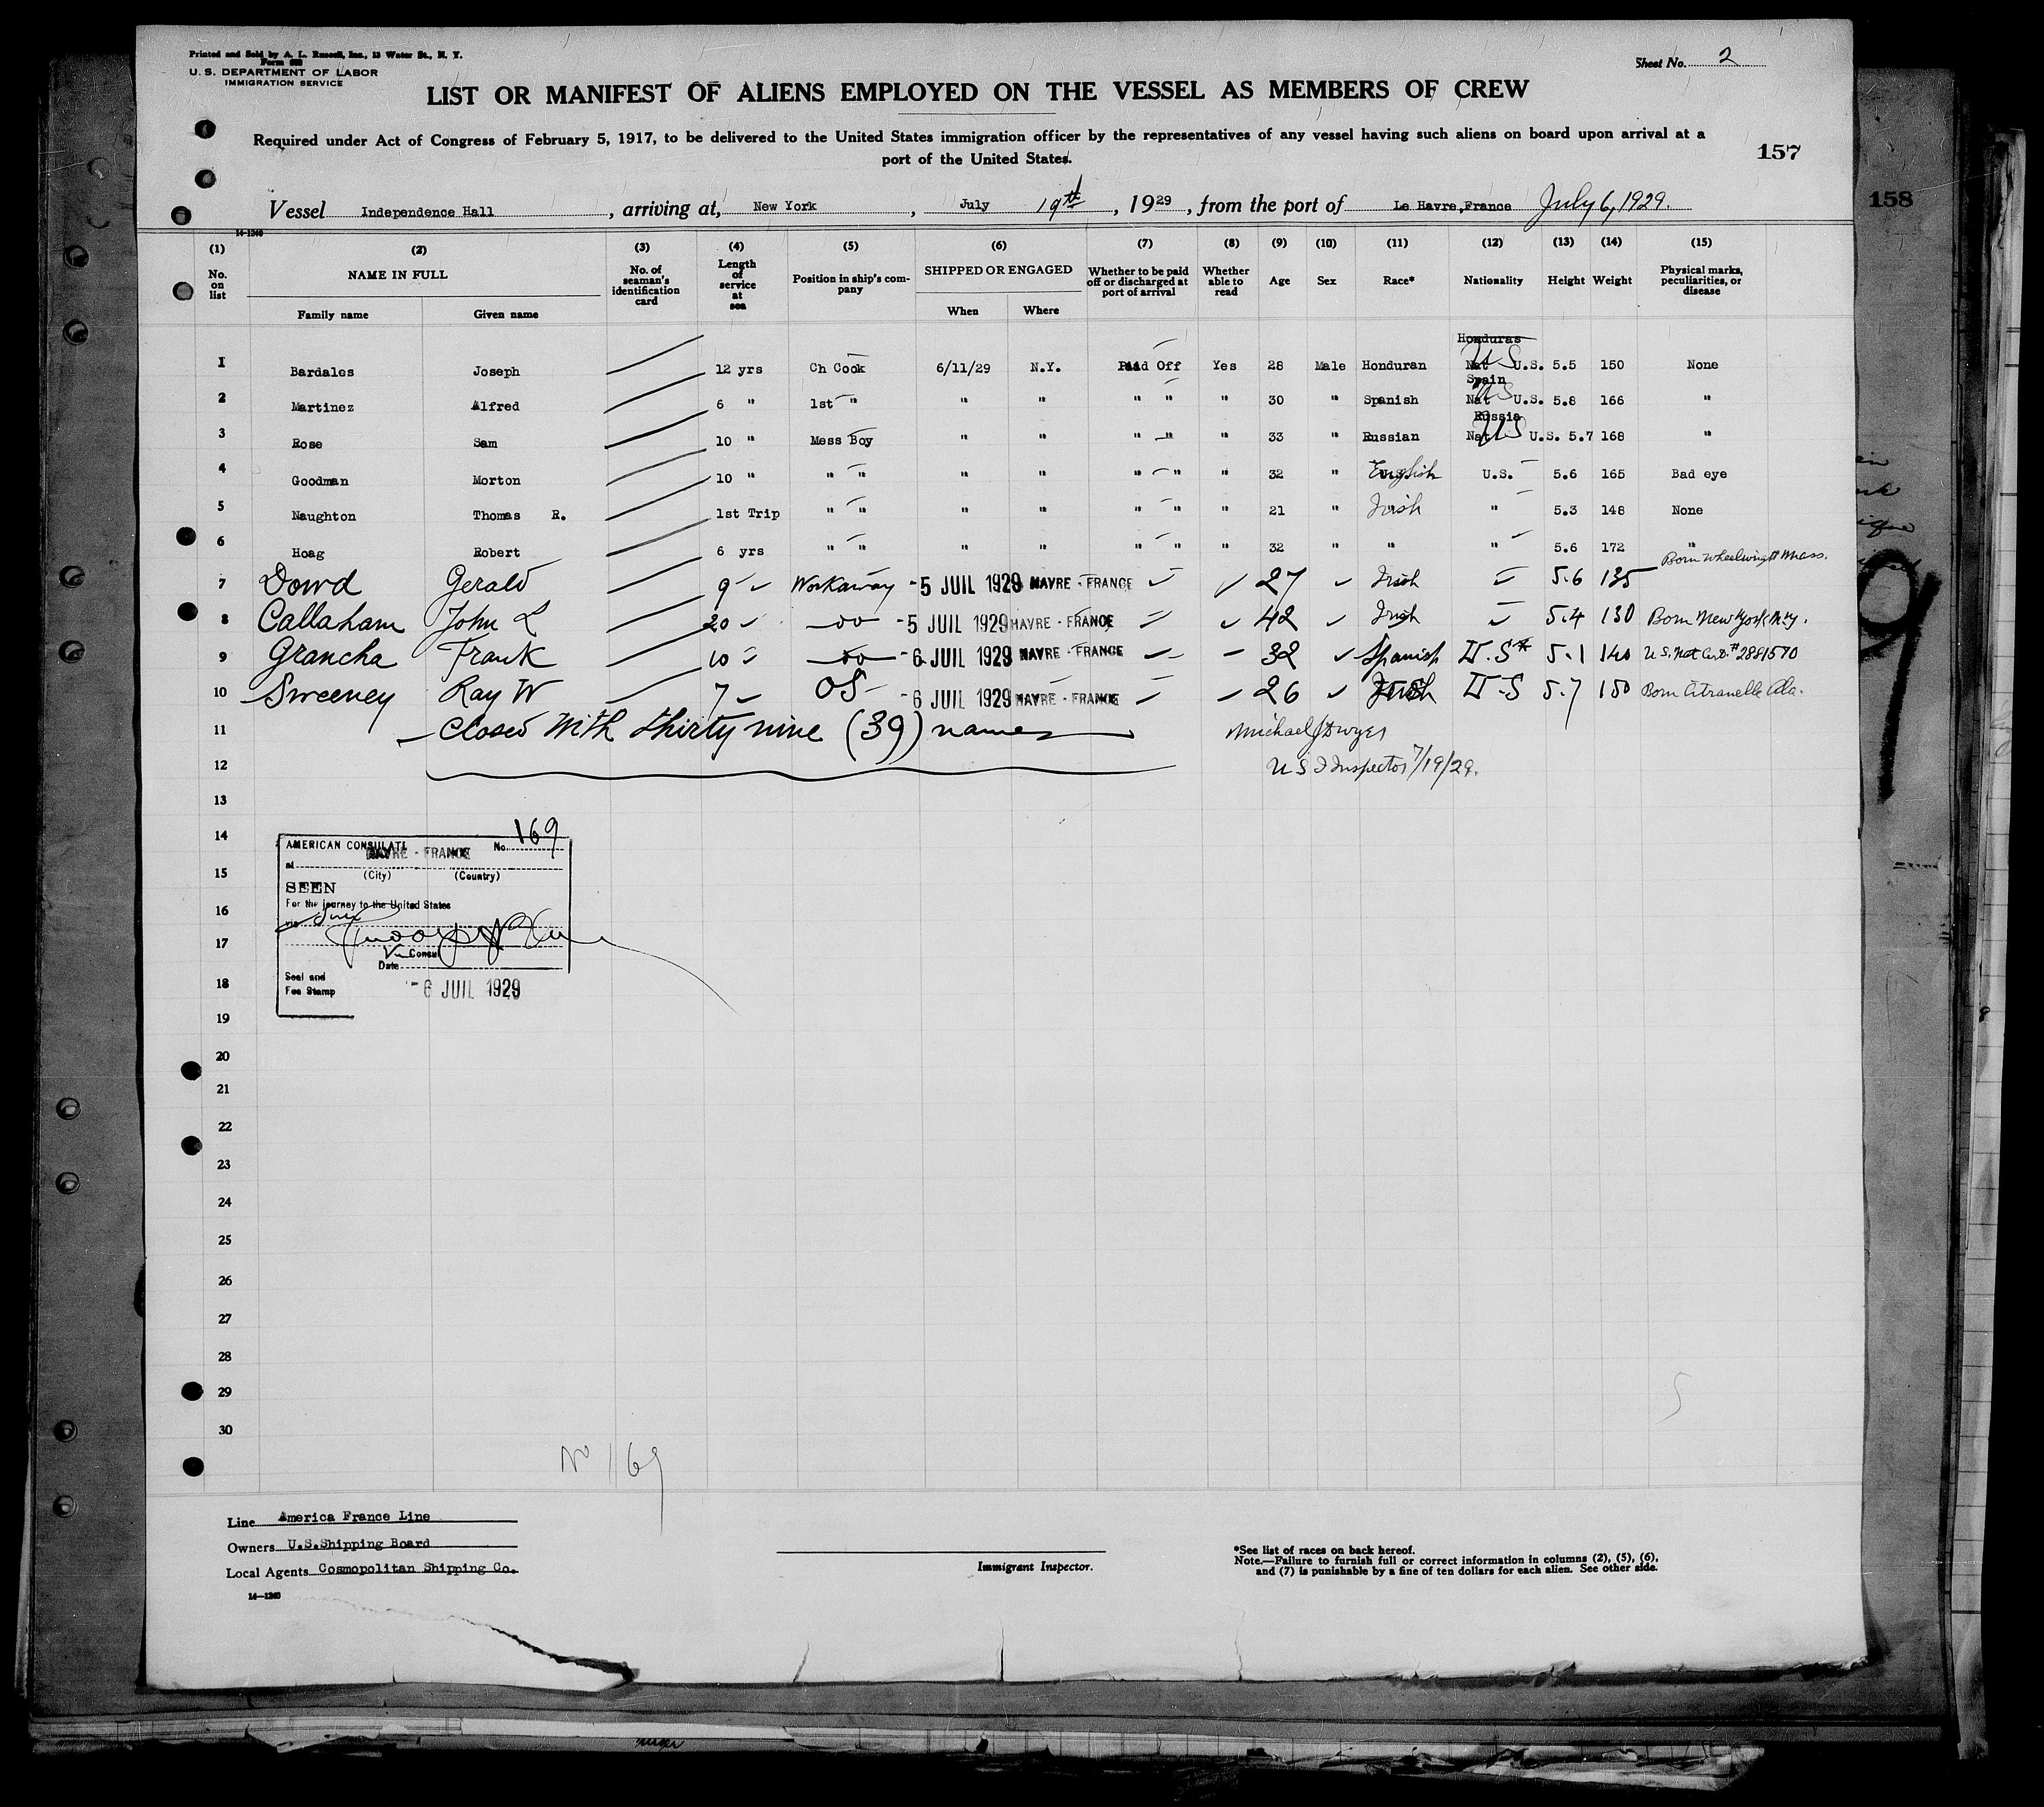 Printed and Sold by A. L. Russell, Inc., 13 Water St., N. Y.
U. S. DEPARTMENT OF LABOR
IMMIGRATION SERVICE
Sheet No. 2
LIST OR MANIFEST OF ALIENS EMPLOYED ON THE VESSEL AS MEMBERS OF CREW
Required under Act of Congress of February 5, 1917, to be delivered to the United States immigration officer by the representatives of any vessel having such aliens on board upon arrival at a
port of the United States.
157
158
Vessel Independence Hall , arriving at, New York , July 19th , 1929 , from the port of Le Havre, France July 6, 1929.
14-1240
(1) (2) (3) (4) (5) (6) (7) (8) (9) (10) (11) (12) (13) (14) (15)
No. on list NAME IN FULL Family name Given name No. of seaman's identification card Length of service at sea Position in ship's company SHIPPED OR ENGAGED When Where Whether to be paid off or discharged at port of arrival Whether able to read Age Sex Race* Nationality Height Weight Physical marks, peculiarities, or disease
Honduras
1 Bardales Joseph 12 yrs Ch Cook 6/11/29 N.Y. Paid Off Yes 28 Male Honduran Nat US U.S. 5.5 150 None
Spain
2 Martinez Alfred 6 " 1st " " " " " " 30 " Spanish Nat US U.S. 5.8 166 "
Russia
3 Rose Sam 10 " Mess Boy " " " " " 33 " Russian Nat US U.S. 5.7 168 "
4 Goodman Morton 10 " " " " " " " " 32 " English U.S. 5.6 165 Bad eye
5 Naughton Thomas R. 1st Trip " " " " " " " 21 " Irish " 5.3 148 None
6 Hoag Robert 6 yrs " " " " " " " 32 " " " 5.6 172 "
7 Dowd Gerald 9 Workaway -5 JUIL 1929 HAVRE - FRANCE 27 Irish 5.6 135 Born Wheelwright Mass.
8 Callaham John L 20 -do- -5 JUIL 1929 HAVRE - FRANCE 42 Irish 5.4 130 Born New York N.Y.
9 Grancha Frank 10 -do- -6 JUIL 1929 HAVRE - FRANCE 32 Spanish U.S* 5.1 140 U.S. Nat Cert. # 2881570
10 Sweeney Ray W 7 OS -6 JUIL 1929 HAVRE - FRANCE 26 Irish U.S 5.7 150 Born Citronelle Ala.
11 Closed With thirty nine (39) names Michael J Dwyer
12 U S I Inspector 7/19/29.
13
14
AMERICAN CONSULATE No. 169
at HAVRE - FRANCE
15
(City) (Country)
SEEN
For the journey to the United States
16
via
17
Vice Consul
Date
18
Seal and
Fee Stamp
-6 JUIL 1929
19
20
21
22
23
24
25
26
27
28
29
30
No 169
Line America France Line
Owners U.S. Shipping Board
Local Agents Cosmopolitan Shipping Co.
14-1240
Immigrant Inspector.
*See list of races on back hereof.
Note.—Failure to furnish full or correct information in columns (2), (5), (6),
and (7) is punishable by a fine of ten dollars for each alien. See other side.